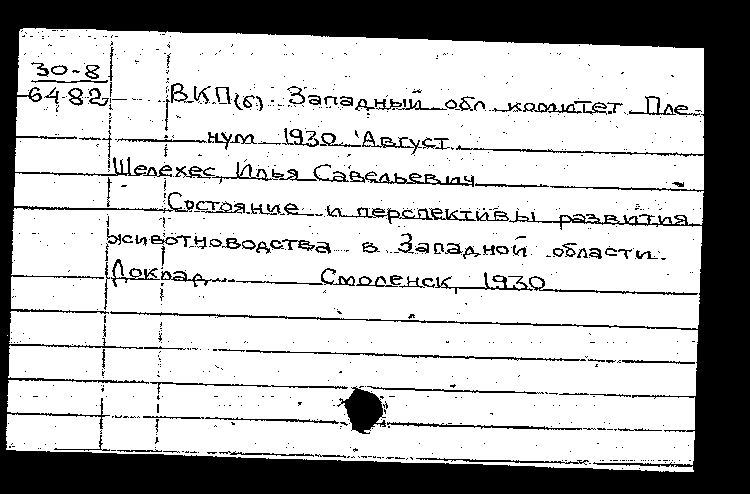 30-8
6482
ВКП(б). Западный обл. комитет. Пле-
нум. 1930. Август.
Шелехес, Илья Савельевич
Состояние и перспективы развития
животноводства в Западной области.
Доклад... Смоленск, 1930